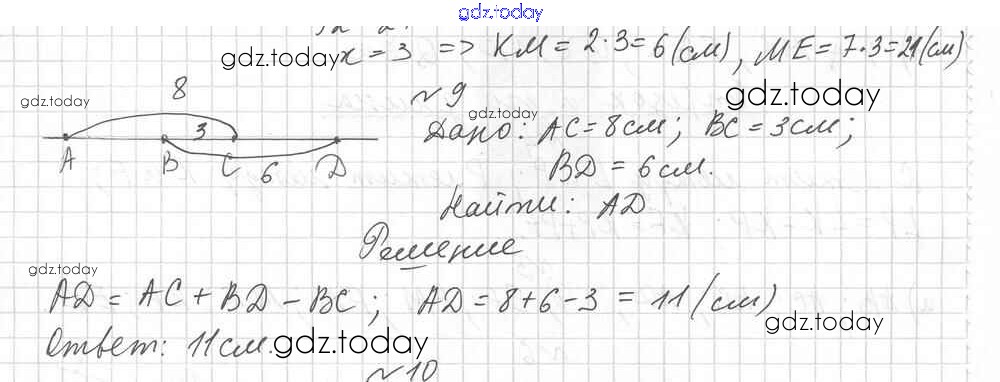 gdz.today
x = 3 => KM = 2·3 = 6 (см), ME = 7·3 = 21 (см)
gdz.today
№9
gdz.today
8
gdz.today
gdz.today
3
Дано: AC = 8см; BC = 3см;
A B C D
6
BD = 6см.
Найти: AD
Решение
gdz.today
AD = AC + BD - BC; AD = 8 + 6 - 3 = 11 (см)
gdz.today
Ответ: 11см.
gdz.today
№10